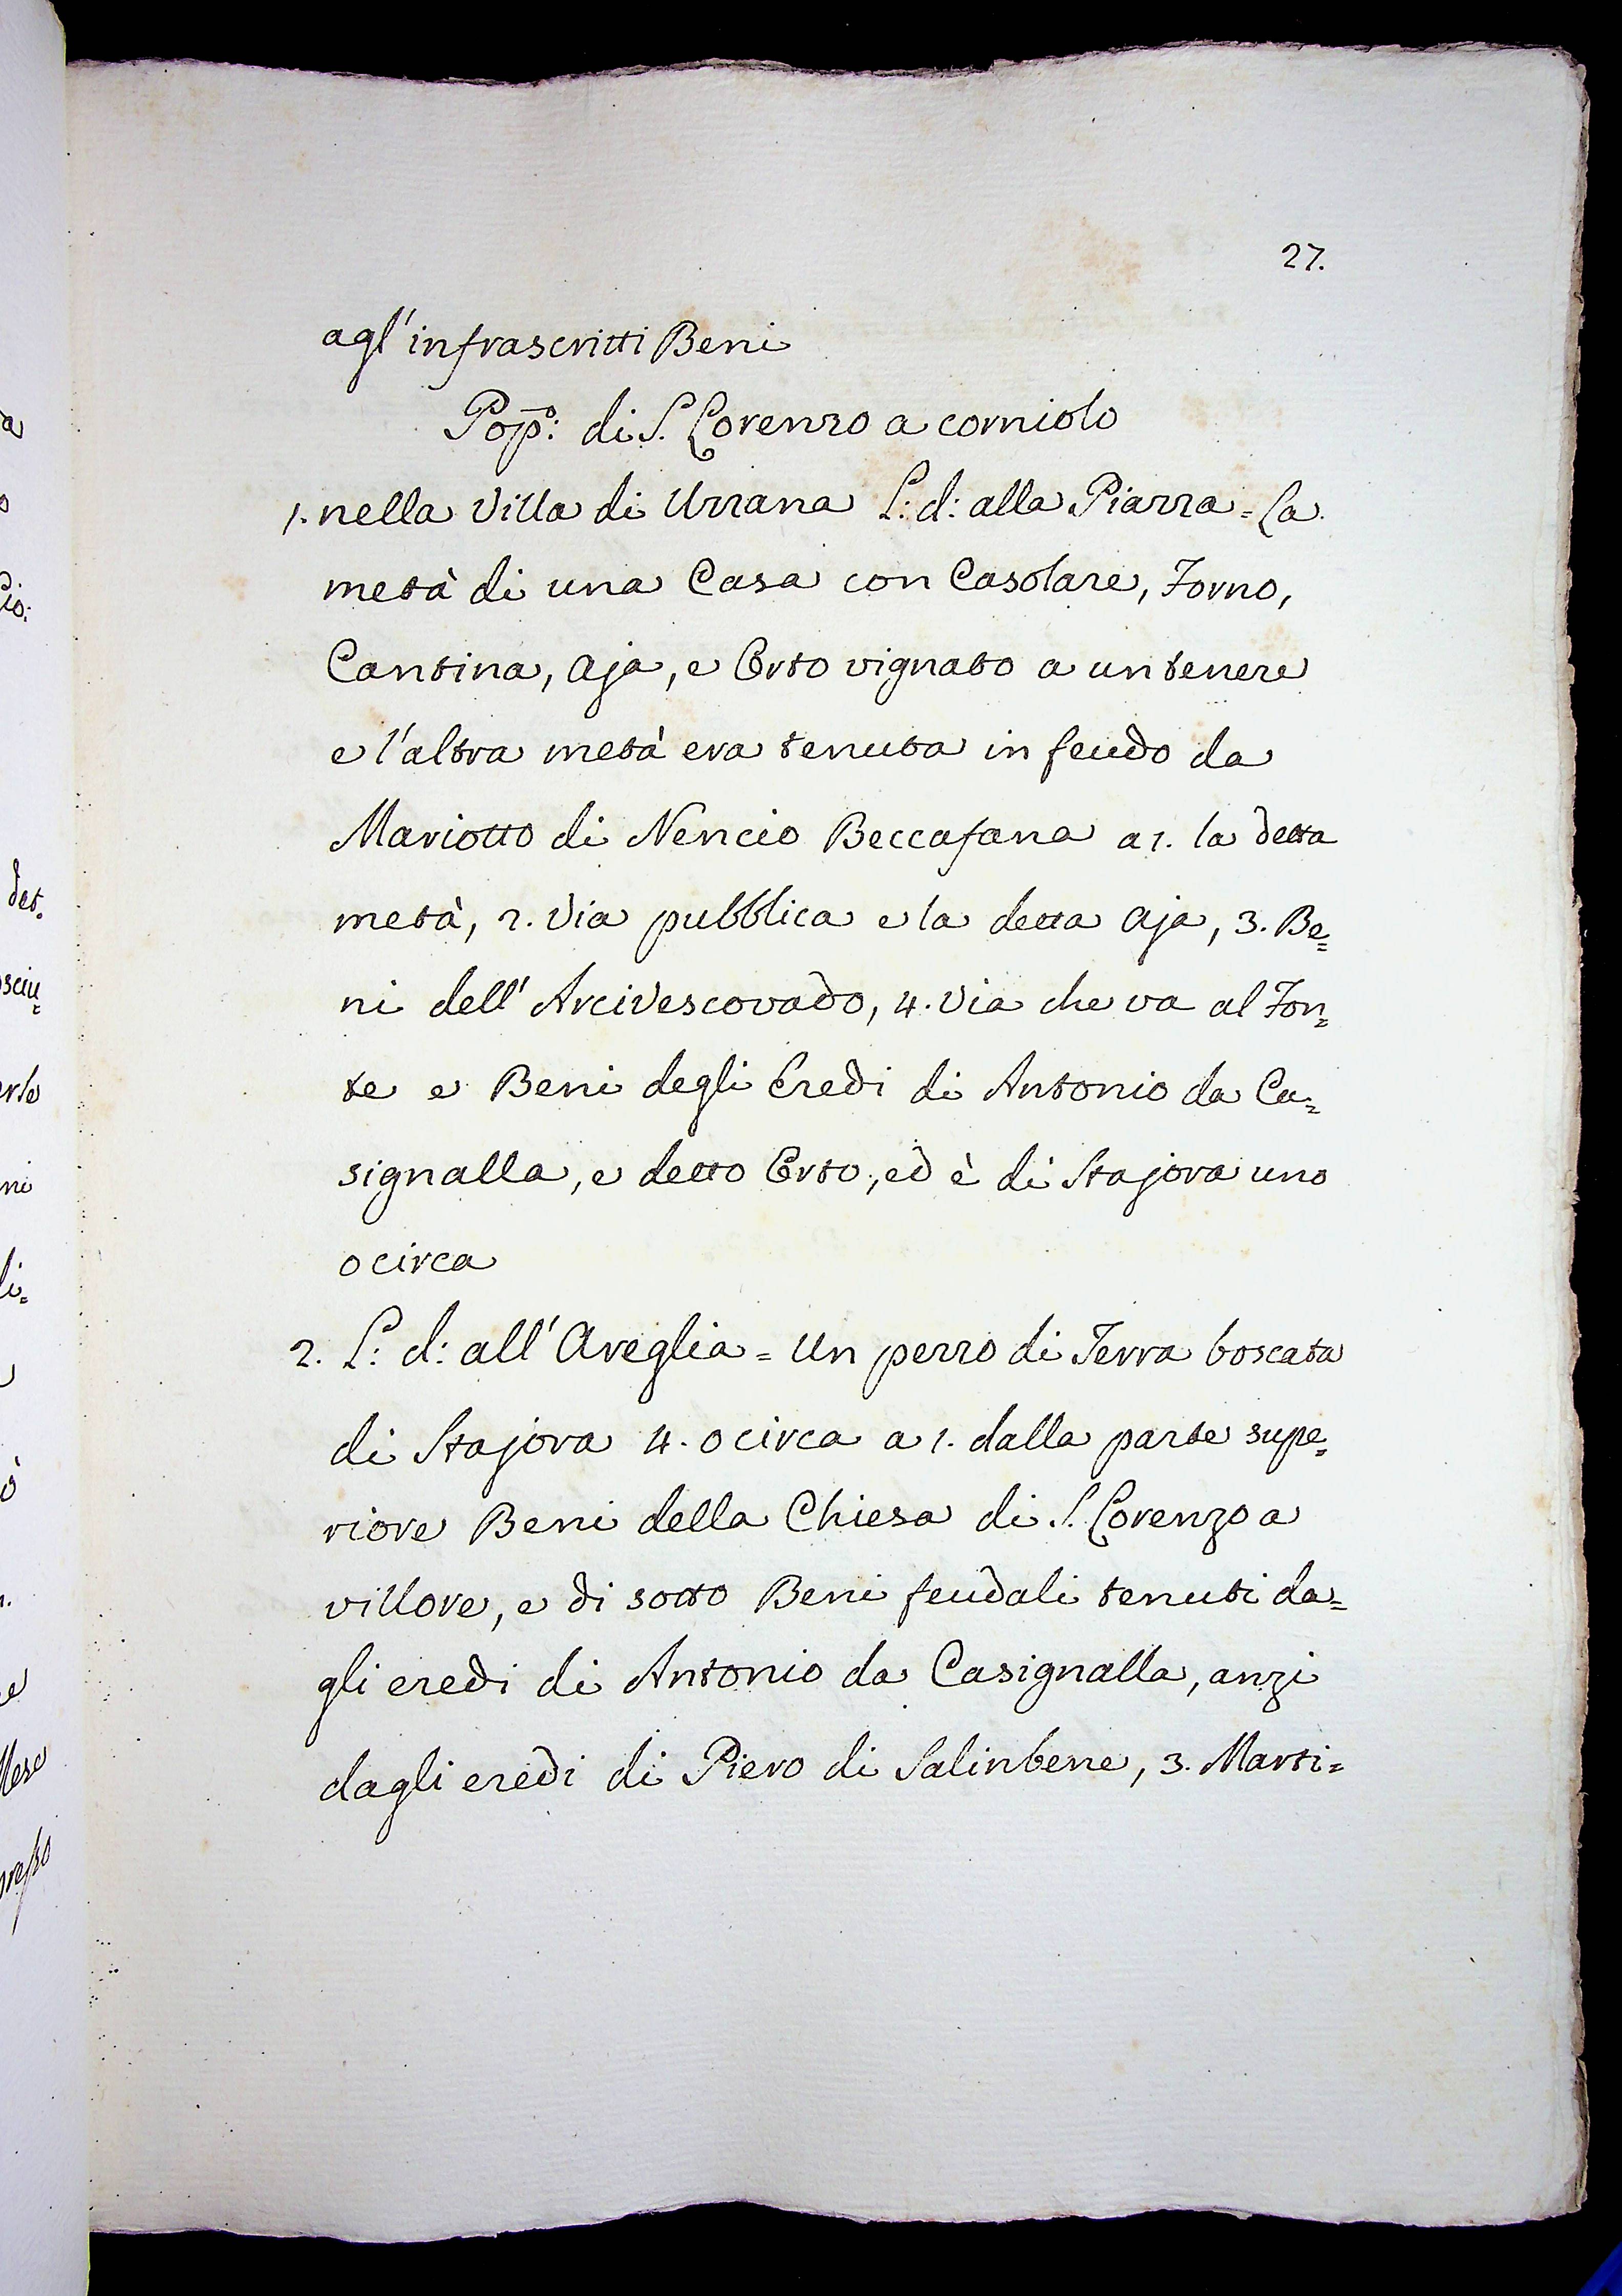 27.
agl'infrascritti Beni
Pop:º di S. Lorenzo a corniolo
1. nella Villa di Uzzana L: d: alla Piazza = La
metà di una Casa con Casolare, Forno,
Cantina, Aja, e Orto vignato a un tenere
e l'altra metà era tenuta in feudo da
Mariotto di Nencio Beccafana a 1. la detta
metà, 2. Via pubblica e la detta Aja, 3. Be=
ni dell'Arcivescovado, 4. Via che va al Fon=
te e Beni degli Eredi di Antonio da Ca=
signalla, e detto Orto, ed è di Stajora uno
o circa
2. L: d: all'Aveglia = Un pezzo di Terra boscata
di Stajora 4. o circa a 1. dalla parte supe=
riore Beni della Chiesa di S. Lorenzo a
villore, e di sotto Beni feudali tenuti da=
gli eredi di Antonio da Casignalla, anzi
dagli eredi di Piero di Salinbene, 3. Marti=